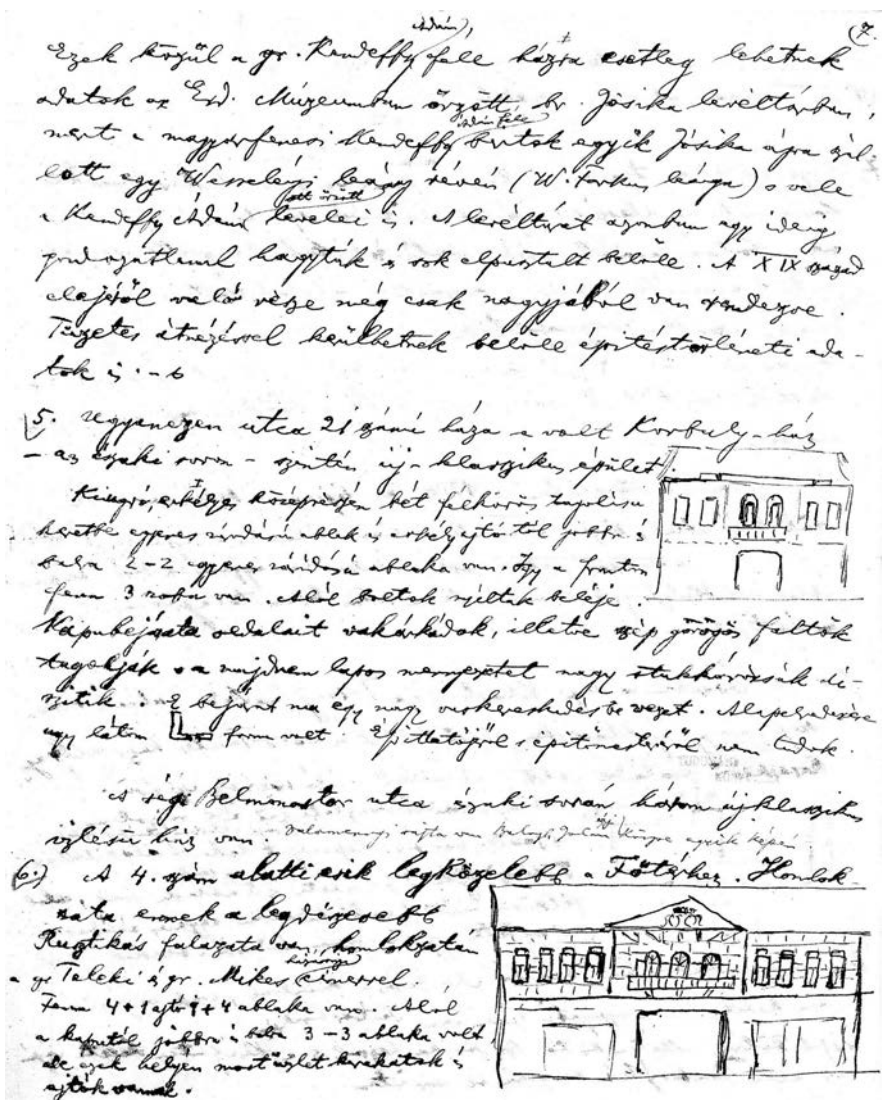 7.
Ádám),
Ezek közül a gr. Kendeffy féle házra esetleg lehetnek
adatok az Erd. Múzeumban őrzött br. Jósika levéltárban,
Ádám féle
mert a magyarfenesi Kendeffy birtok egyik Jósika ágra szál-
lott egy Wesselényi leány révén (W. Farkas leánya) s vele
ott őrzött
a Kendeffy Ádám levelei is. A levéltárat azonban egy ideig
gondozatlanul hagyták és sok elpusztult belőle. A XIX század
elejéről való része még csak nagyjából van rendezve.
Tüzetes átnézéssel kerülhetnek belőle építéstörténeti ada-
tok is.
5. Ugyanezen utca 21 számú háza a volt Korbuly-ház
– az északi soron – szintén új-klasszikus épület.
Kiugró, erkélyes középrészén két félkörös tagolású
keretbe egyenes záródású ablak és erkélyajtótól jobbra és
balra 2–2 egyenes záródású ablaka van. Így a fronton
fenn 3 szoba van. Alól boltok nyíltak beléje.
Kapubejárata oldalait vakárkádok, illetve szép görögös faltők
tagolják s a majdnem lapos mennyezetet nagy stukkórózsák dí-
szítik. E bejárat ma egy nagy vaskereskedésbe vezet. Alapelrendezése
úgy látom forma volt. Építtetőjéről s építőmesteréről nem tudok.
A régi Belmonostor utca északi során három újklasszikus
ízlésű ház van. Valamennyi rajta van Balogh Jolán könyve egyik képén
6.) A 4. szám alatti esik legközelebb a Főtérhez. Homlok-
zata ennek a legdíszesebb
Rusztikás falazata van, homlokzatán
gr Teleki és gr. Mikes címerrel.
Fenn 4+1 ajtó + 4 ablaka van. Alól
a kaputól jobbra és balra 3–3 ablaka volt
de ezek helyén most üzlet kirakatok és
ajtók vannak.